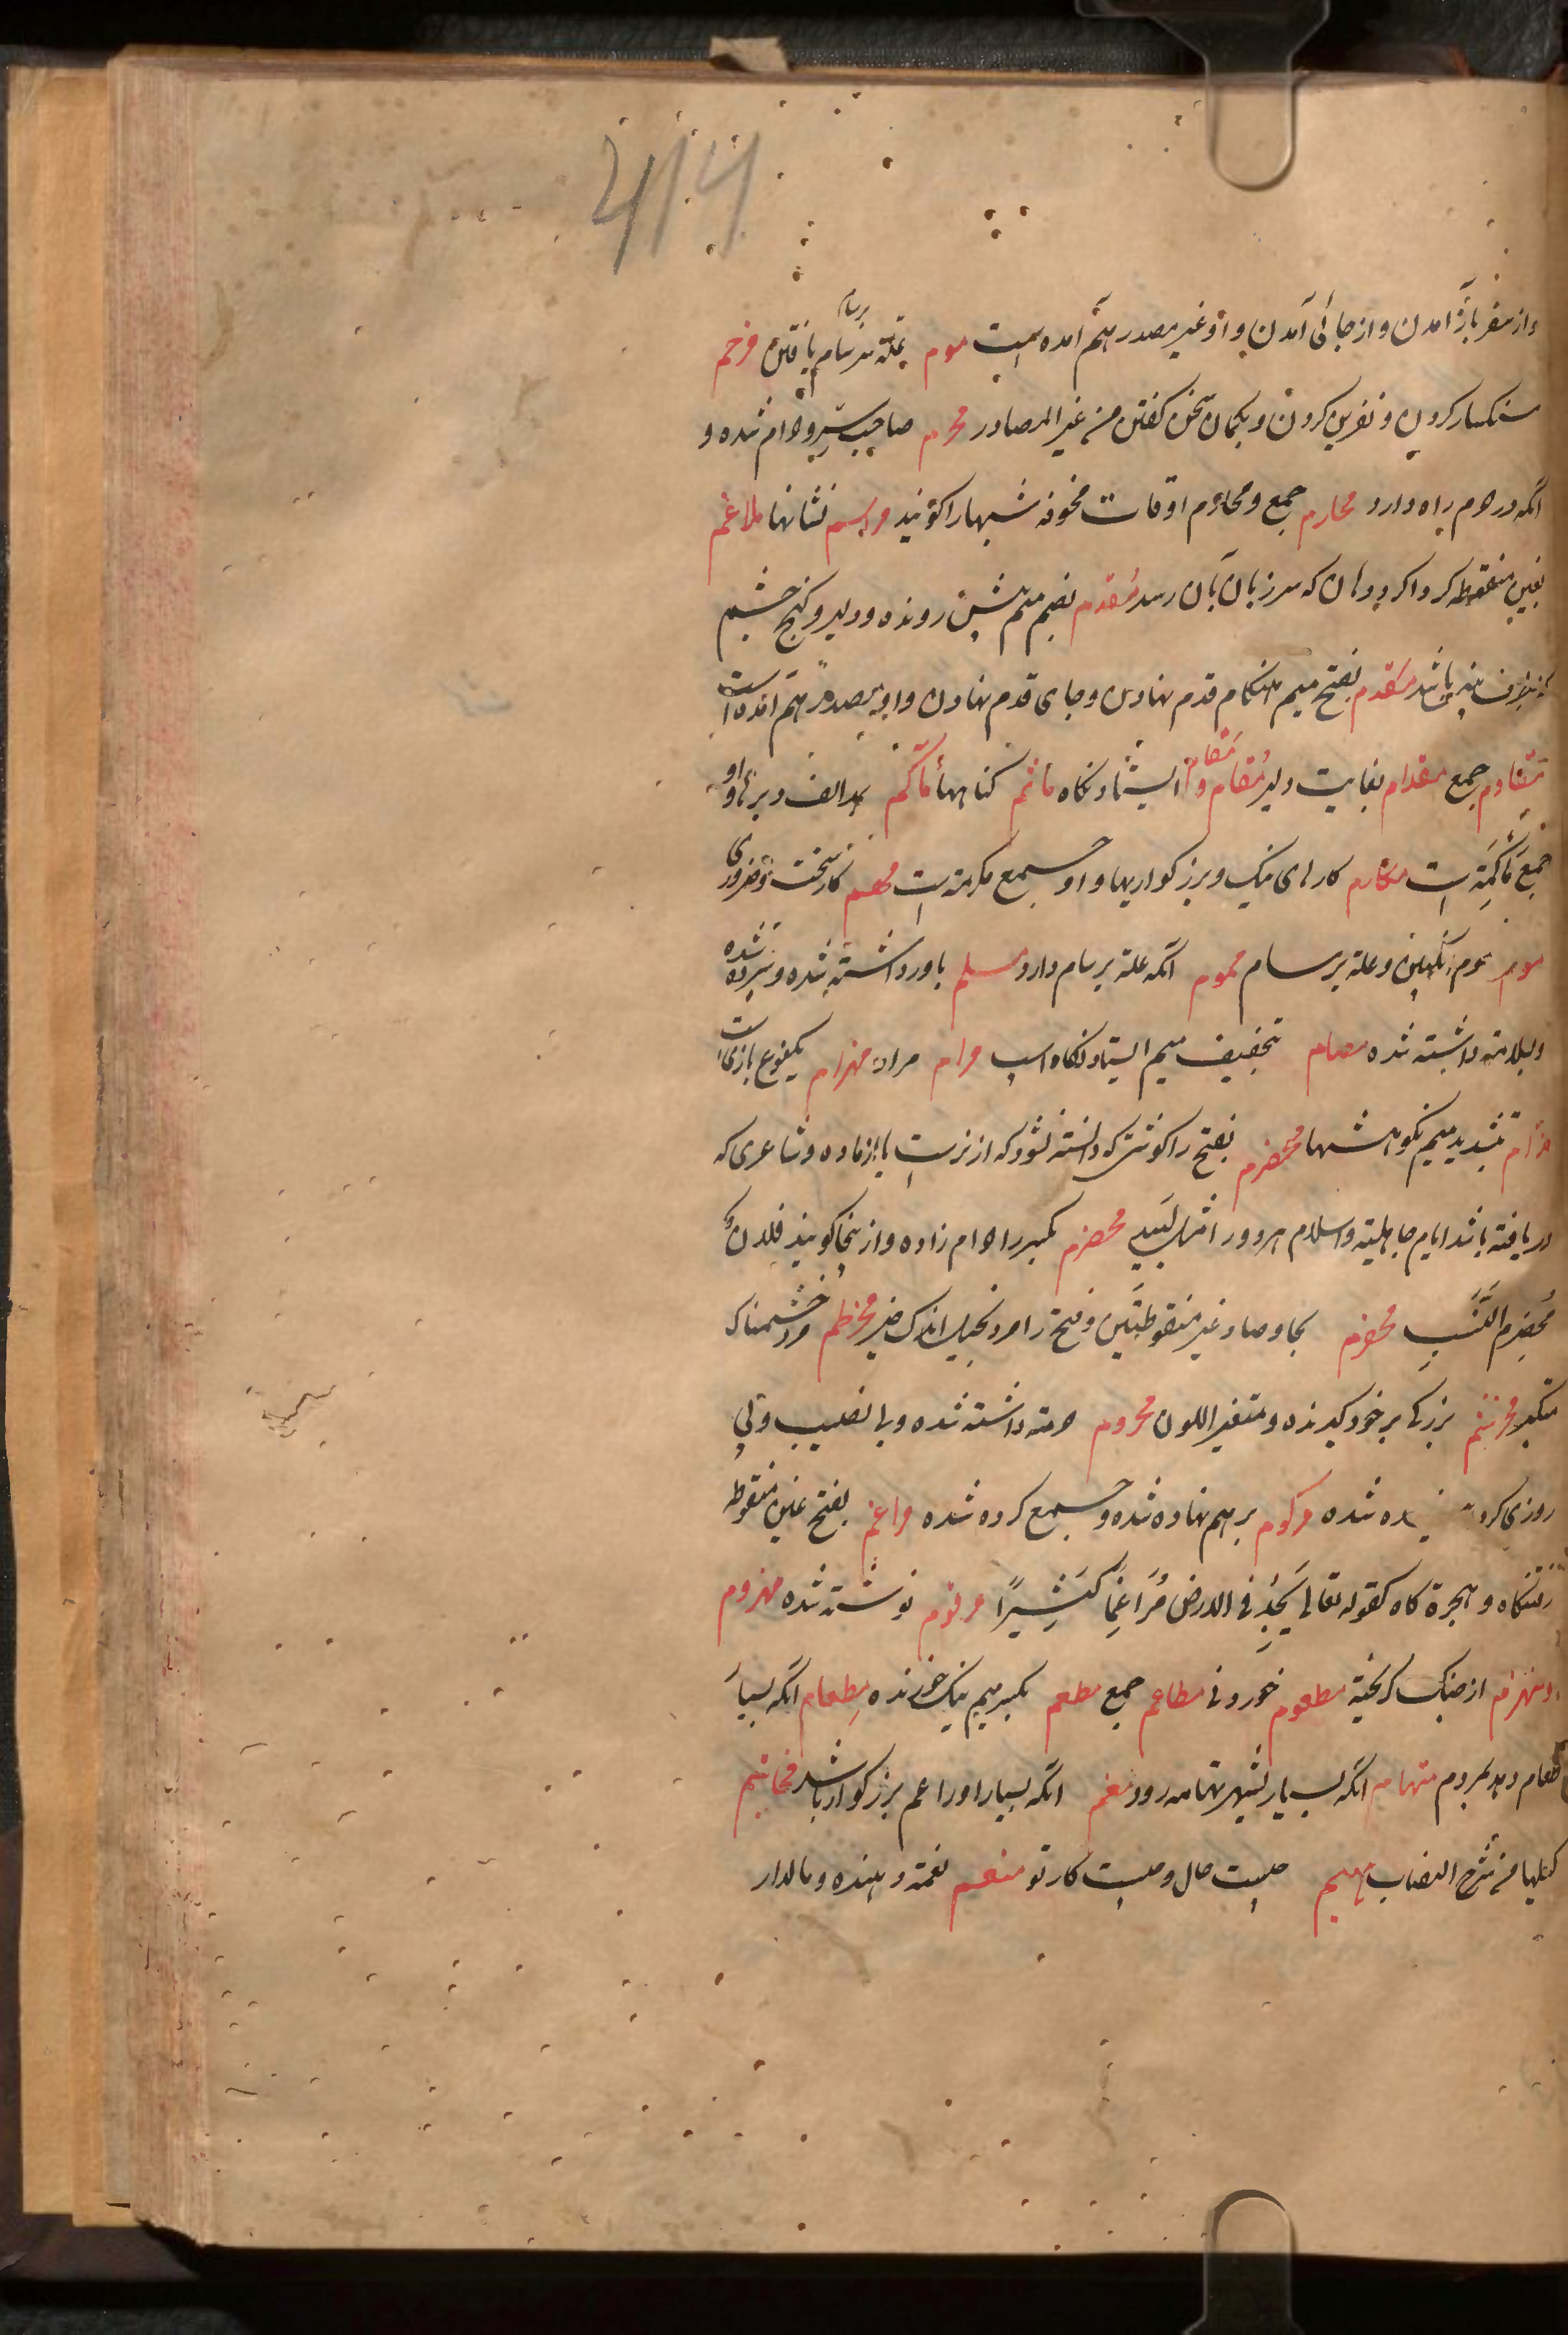 414
واز سفر باز آمدن واز جائی آمدن واو غیر مصدر هم آمده است موم بعلة سرسام برسام یافتن مرجم
سنکسار کردن و نفرین کردن و بکمان سخن کفتن من غیر المصادر محرم صاحب ستر و حرام شده و
انکه در حرم راه دارد محارم جمع ومحارم اوقات مخوفه شبها را کویند مراسم نشانها ملاغم
بغین منقوطه کرداکرد دهان که سر زبان بآن رسد مقدم بضم میم پیش رونده ودلیر وکنج چشم
که بطرف بینی باشد مقدم بفتح میم هنکام قدم نهادن وجای قدم نهادن واو مصدر هم آمده است
مقادم جمع مقدام بغایت دلیر مُقام و مَقام ایستادنکاه مآثم کناهها مآکم بمد الف و برنها واو
جمع مأکمة است مکارم کارهای نیک وبزرکواریها واو جمع مکرمه است مهم کار سخت وضروری
موم موم انکبین وعلة برسام مموم انکه علة برسام دارد مسلم باور داشته شده وسپرده شده
وبسلامة داشته شده مصام بتخفیف میم ایستادنکاه اسب مرام مراد مهزام یکنوع بازی است
مذام بتشدید میم نکوهشها مخضرم بفتح را کوشتی که دانسته نشود که از نرست یا از ماده وشاعری که
دریافته باشد ایام جاهلیة واسلام هر دو را مثل لبید مخضرم بکسر را حرام زاده واز اینجا کویند فلان
مُخضرم النَّسَبِ محصرم بحا وصاد غیر منقوطتَین وفتح را مرد بخیل اندک خیر مخرنطم مرد خشمناک
متکبر مخرنثم بزرکی بر خود کیرنده ومتغیر اللون محروم حرمة داشته شده وبی نصیب وبی
روزی کرد ده شده مرکوم بر هم نهاده شده و جمع کرده شده مراغم بفتح غین منقوطه
رفتنکاه و هجرة کاه کقوله تعالی یَجِدْ فی الارض مُرَاغَمًا کَثِیرًا مرقوم نوشته شده مهزوم
ومنهزم از جنک کریخته مطعوم خوردنی مطاعم جمع مطعم بکسر میم نیک خورنده مِطعام انکه بسیار
طعام دهد بمردم متهام انکه بسیار بشهر تهامه رود معم انکه بسیار او را عم بزرکوار باشد مخاتیم
کیلها من شرح النصاب مهیم چیست حال و چیست کار تو منعم نعمة دهنده ومالدار